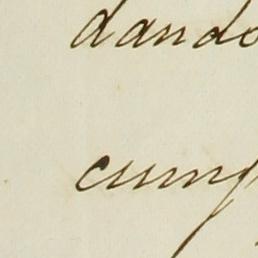 dando
cump